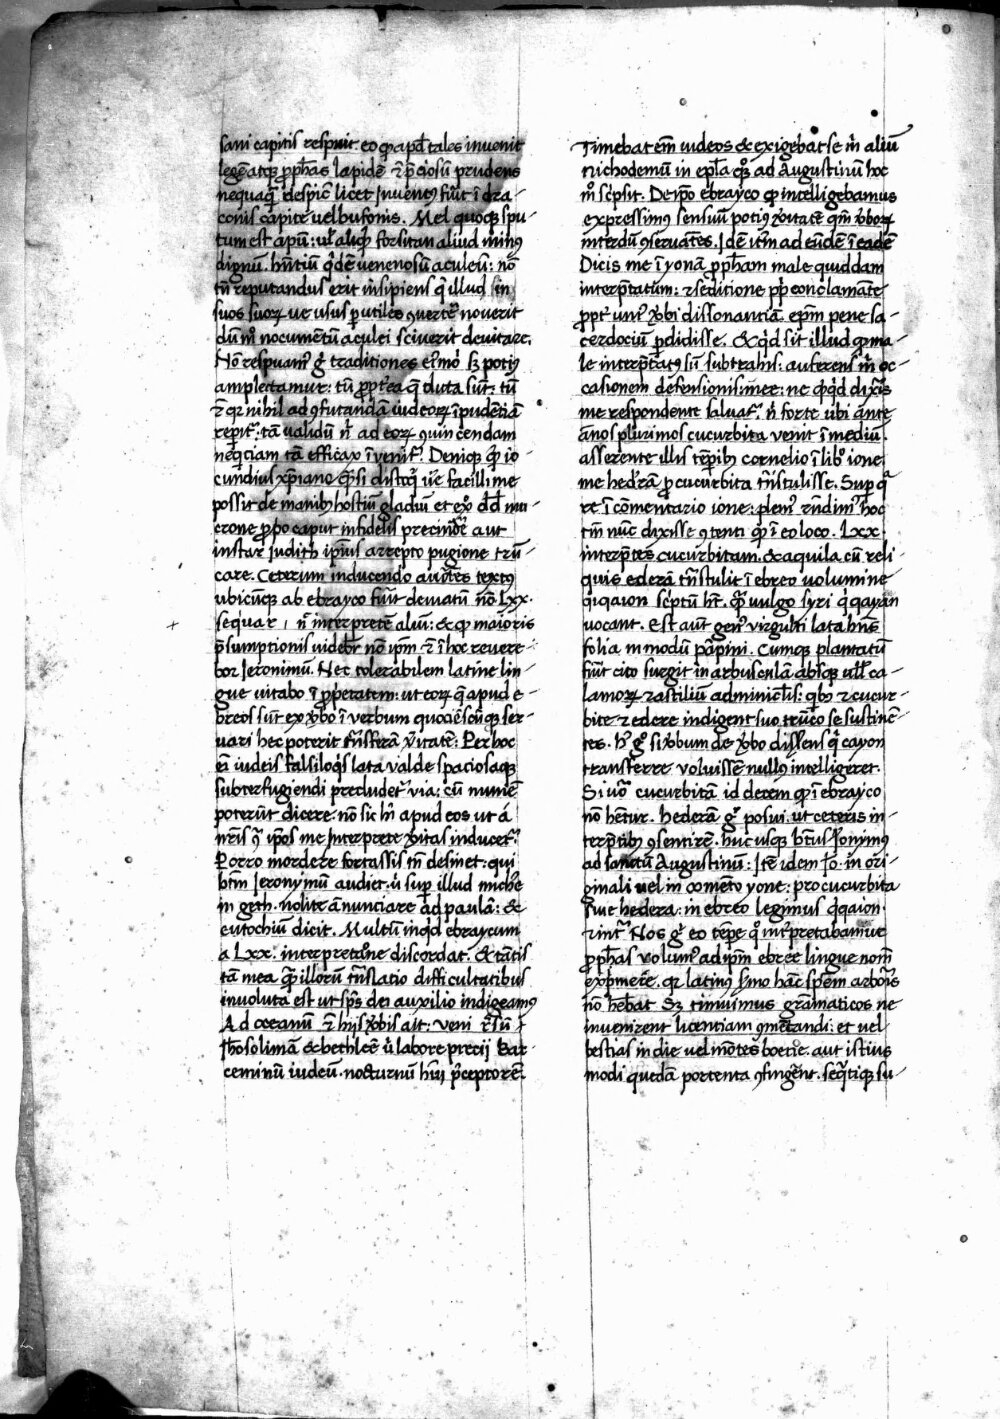 sani capitis respuit eo ꝙ apd̄ tales invenit
legē atqꝫ ꝓph̄as lapidē ⁊ p̄ciosū prudens
nequaqᷓ despic̄ licet Inventꝰ fūīt ī dra-
conis capite uel bufonis. Mel quoqꝫ spu-
tum est apū: ul̓ aliqd̄ forsitan aliud minꝰ
dignū. hn̄tiū qͥdē venenosū aculeū: nō
tn̄ reputandus erit insipiens qͥ illud in
suos suoꝝ ve usus ꝑ utiles ꝯvertē noverit
dūm̊ nocumētū aculei sciverit devitare.
Nō respuamꝰ gͦ traditiones eiꝰmōi sꝫ potiꝰ
amplectamur: tū ꝓpt̓ea qͣ dicta sūt: tū
⁊ qꝛ nihil ad ꝯfutandā iudeoꝝ īpudētiā
reꝑit̓: tā validū nͥ ad eoꝝ ꝯvincendam
neqͥciam tā efficax īvenit̓. Deniqꝫ qd̄ io-
cundius xp̄iano qͣsi dictaqͥ ve facillime
possit de manibꝰ hostiū gladiū et exͦ dd̄ mu-
crone ꝓpͦo caput infidelis precindere aut
instar Judith ipsius arrepto pugione trū-
care. Ceterum inducendo auctētes textꝰ
ubicūqꝫ ab ebrayco fūīt deviatū nō Lxx.
sequar, n̄ interpretē aliū: & ꝙ maioris
p̄sumptionis videbr̄ nō ip̄m ⁊ ī hoc revere-
bor Jeronimū. Nec tolerabilem latine lin-
gue vitabo īpropetatem: ut eoꝝ qͣ apud e-
breos sūt ex v̓bo ī verbum quociēscūqꝫ ser-
vari hec poterit trn̄sferā v̓itatē: Per hoc
eī iudeis falsiloqͥs lata valde spaciosaqꝫ
subterfugiendi precludet̓ via: cū numē
poterūt dicere. nō sic hr̄i apud eos ut á
nr̄is qͣ ip̄os me Interprete v̓itas inducet̓.
Porro mordere fortassis me desinet: qui
btm̄ Jeronymū audiet ū̓ suꝑ illud miche
in geth. nolite ānunciare ad paulā: &
eutochiū dicit. Multū inqͥd ebraycum
a Lxx. interpretatōne discordat. & tātis
tā mea qͣm illorum trn̄slatio difficultatibus
involuta est ut sp̄s dei auxilio indigeamꝰ
Ad oceanū ⁊ hijs v̓bis ait: veni rsū
Jh̄osolimā & bethleē ū̓ labore precij bar
ceminū iudeū. nocturnū hūi p̄ceptorē.
Timebat em̄ iudeos & exigebat se mͥ aliū
nichodemū in epl̄a qͦꝫ ad Augustinū hoc
mͦ sc̓psit. De ip̄o ebrayco ꝙ intelligebamus
expressimꝰ sensuū potiꝰ v̓itatē qͣm v̓boꝝ
interdū ꝯservātes. Idē itm̄ ad eūdē ī eadē
Dicis me ī yonā ꝓph̄am male quiddam
interp̄tatum: ⁊ seditione pp̄l̄i conclamāte
ꝓpt̓ uniꝰ v̓bi dissonantiā ep̄m pene sa-
cerdociū ꝑdidisse. & qͥd sit illud ꝙ ma-
le interp̄tatꝰ sū subtrahis: auferens mͥ oc-
casionem defensionis mee: ne qͥcqͥd dix̓is
me respondente salvat̓. nͥ forte ubi ante
ānos plurimos cucurbita venit ī mediū.
asserente illis tp̄ribꝰ cornelio ī libͦ ione
me hed̓rā ꝓ cucurbita trn̄stulisse. Suꝑ qͣ
re ī cōmentario ione: pleniꝰ rn̄dimꝰ hoc
tm̄ nūc dixisse ꝯtenti qd̄ ī eo loco. Lxx
interp̄tes cucurbitam. & aquila cū reli
quis ederā trn̄stulit ī ebreo volumine
qiqaion sc̓ptū hr̄. qᷓm vulgo syri qͥqayan
vocant. Est aut̄ genꝰ virgulti lata hn̄s
folia in modū pāpini. Cumqꝫ plantatū
fūīt cito surgit in arbusculā absqꝫ ull̓ ca-
lamoꝝ ⁊ astiliū adminicl̄is: qͥbꝰ ⁊ cucur-
bite ⁊ edere indigent suo trūco se sustinē-
tes. hͦ gͦ si v̓bum de v̓bo dissēns qͥcayon
transferre voluissē nullꝰ intelligeret.
Si vͦ cucurbitā id dicerem ꝙ ī ebrayco
nō hētur. Hederā gͦ posui. ut ceteris in-
terp̄tibꝰ ꝯsentirē. hucusqꝫ bt̄us Jronimꝰ
ad sanctū Augustinū: Itē idem Jo. in ori-
ginali vel in comēto yone: pro cucurbita
sive hedera: in ebreo legimus qͥqaion.
⁊int̓ Nos gͦ eo tēpe qͦ int̓pretabamur
ꝓph̄as volumꝰ ad ip̄m ebree lingue nom̄
exp̄mere. qꝛ latinꝰ s̓mo hāc spēm arboris
nō hēbat Sꝫ timuimus grāmaticos ne
invenirent licentiam ꝯmētandi: et vel
bestias indie vel mōtes boetie. aut istius
modi quedā portenta ꝯfingent. seqͣtiqꝫ su-